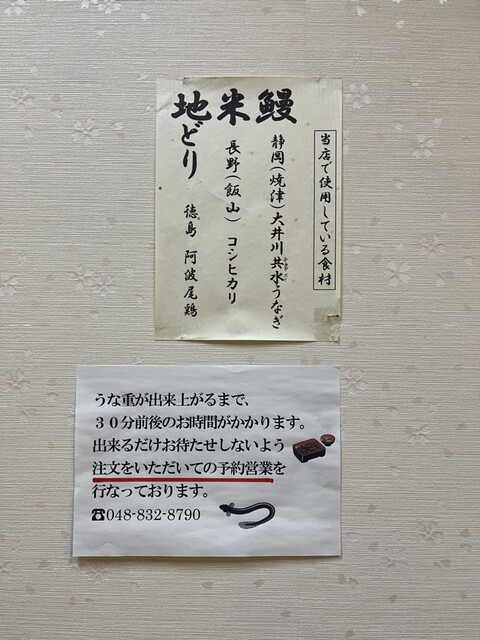 当店で使用している食材
鰻 静岡(焼津)大井川共水うなぎ
米 長野(飯山) コシヒカリ
地どり 徳島 阿波尾鶏
うな重が出来上がるまで、
30分前後のお時間がかかります。
出来るだけお待たせしないよう
注文をいただいての予約営業を
行なっております。
☎048-832-8790